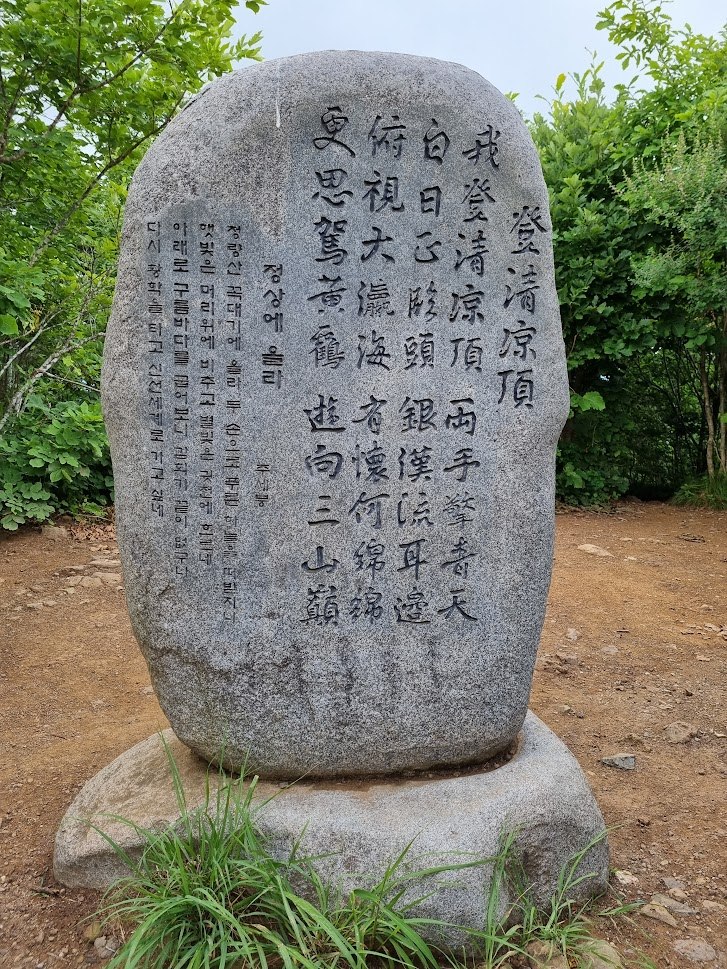 登清凉頂
我登清凉頂 兩手擎青天
白日正臨頭 銀漢流耳邊
俯視大瀛海 有懷何綿綿
更思駕黃鶴 遊向三山巓
정상에 올라
주세붕
청량산 꼭대기에 올라 두 손으로 푸른 하늘을 떠받치니
햇빛은 머리위에 비추고 별빛은 귓전에 흐르네
아래로 구름바다를 굽어보니 감회가 끝이 없구나
다시 황학을 타고 신선세계로 가고 싶네